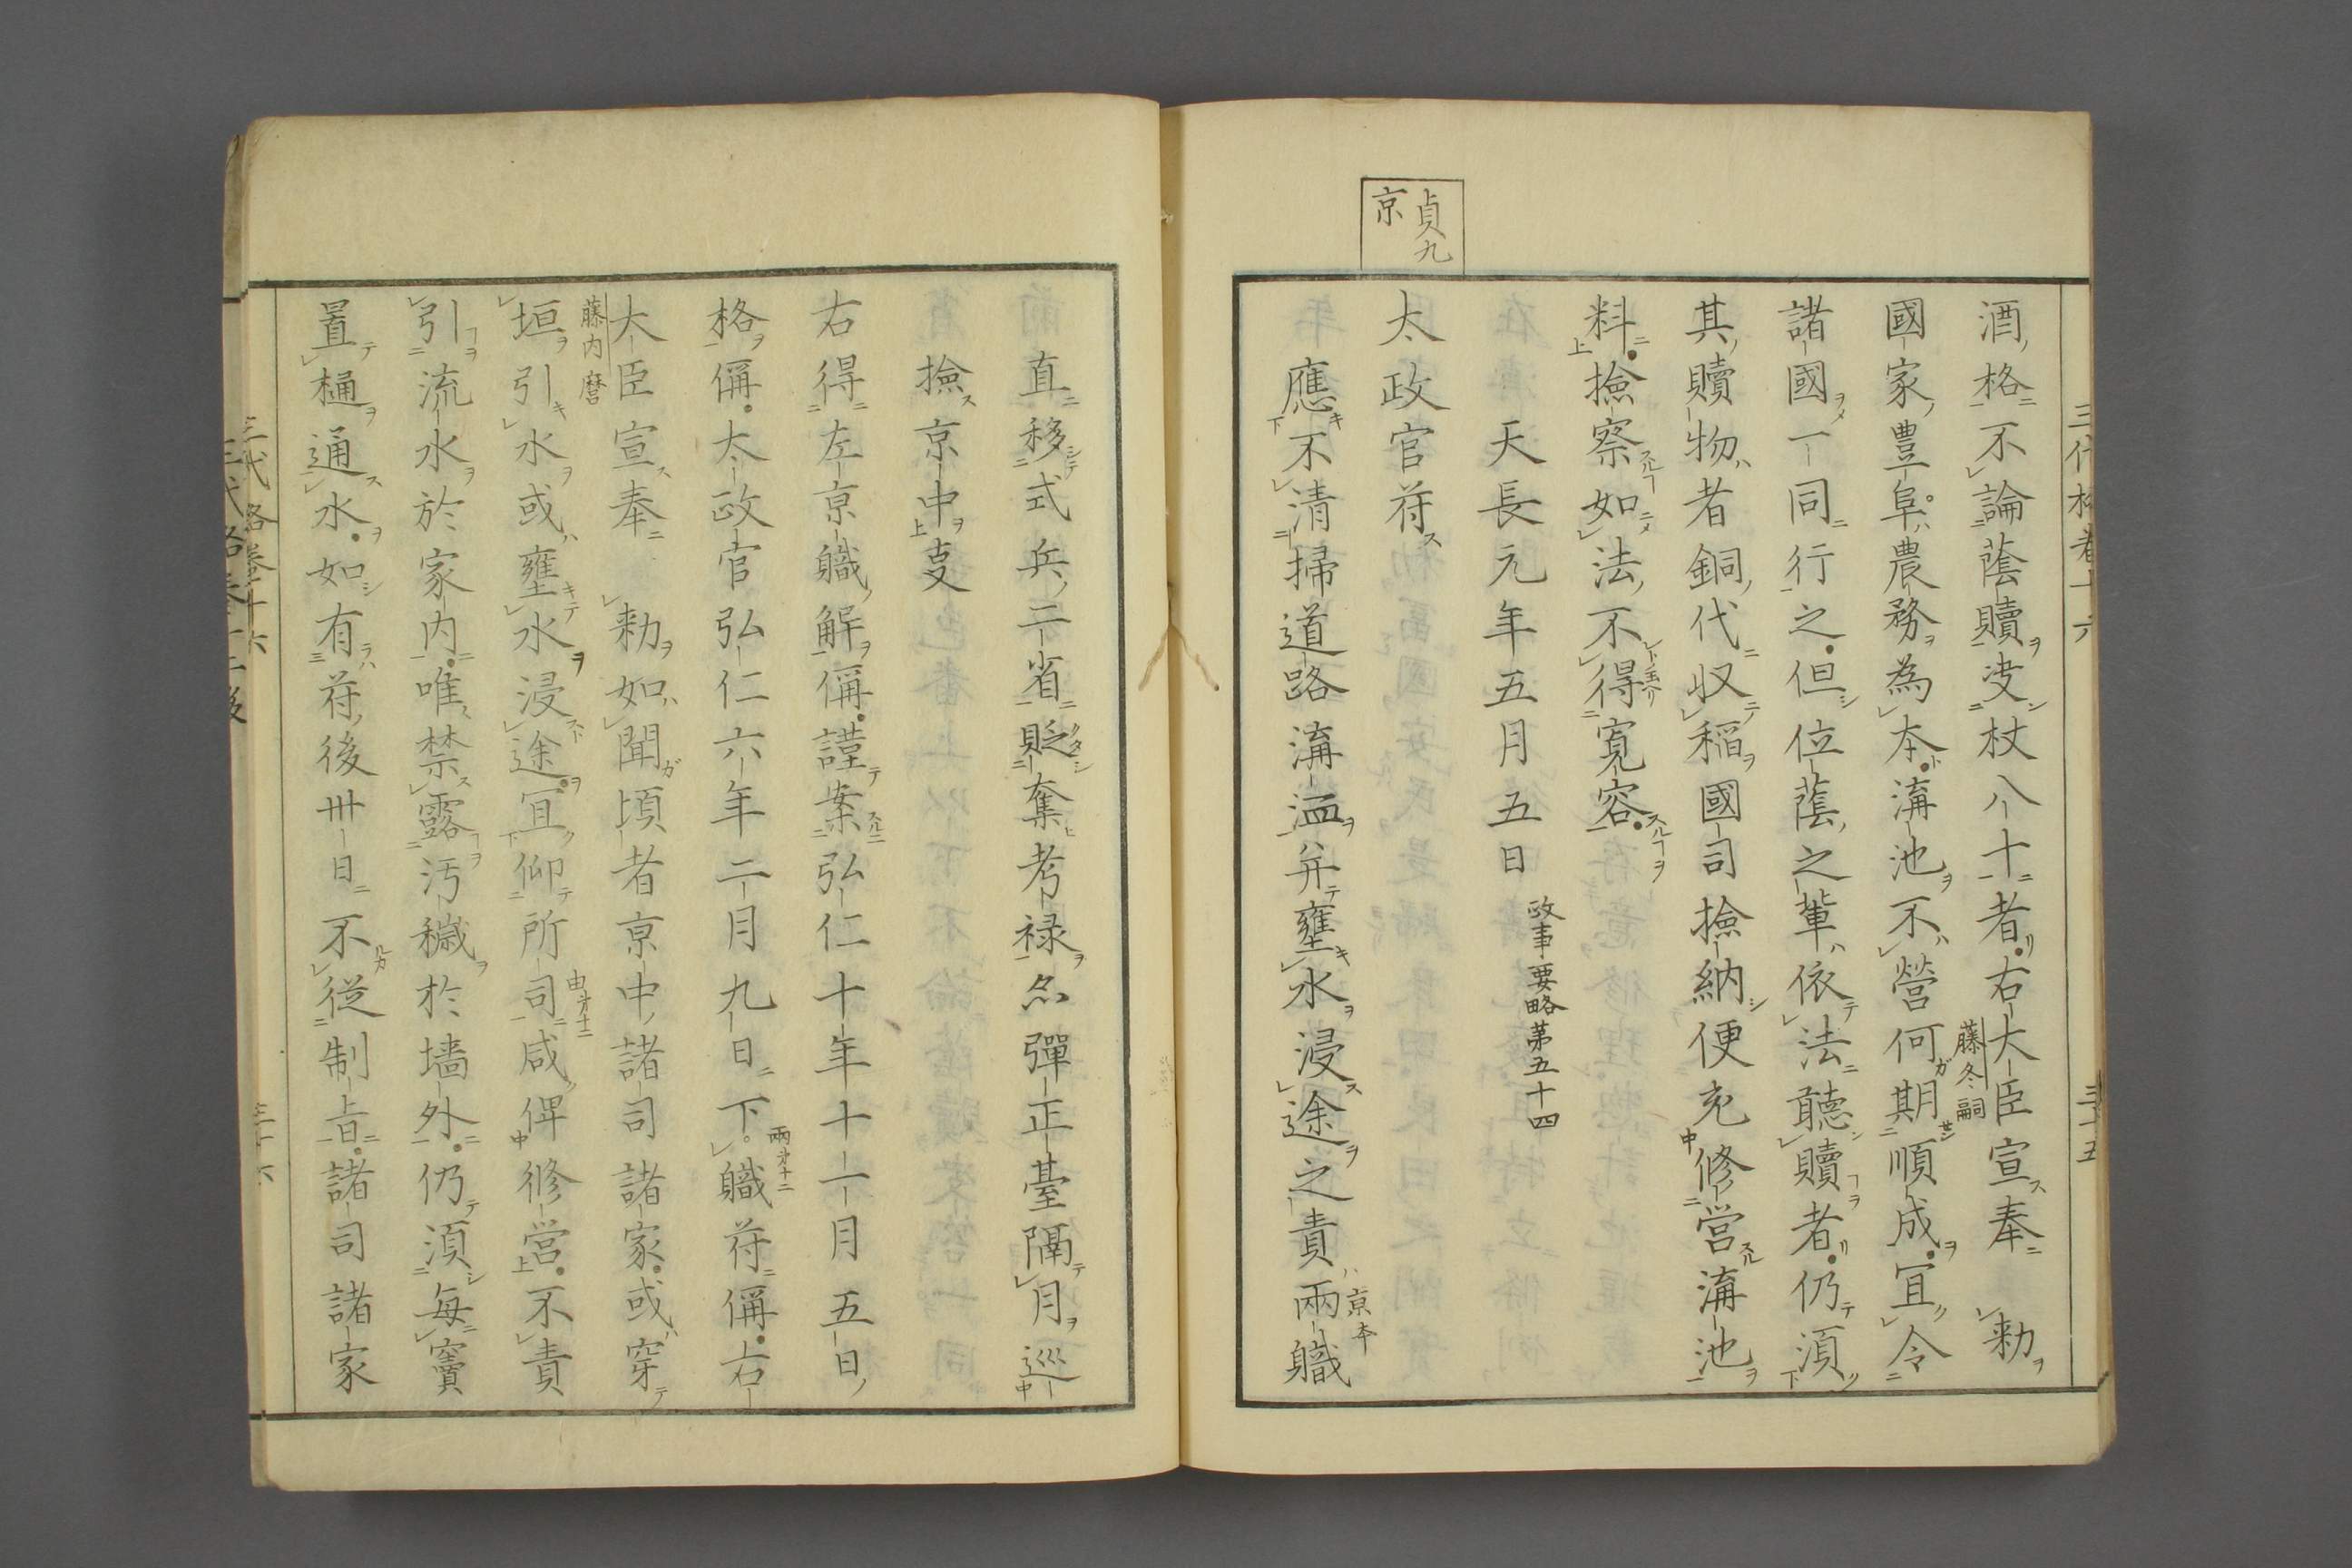 貞九
京
酒格不論蔭贖决杖八十者右大臣宣奉　勅
藤冬嗣
國家豊阜農務為本溝池不營何期順成宜令
諸國一同行之但位蔭之輩依法聽贖者仍須
其贖物者銅代収稲國司撿納便充修営溝池
料撿察如法不得寛容
天長元年五月五日
政事要略第五十四
太政官符
應不清掃道路溝洫并壅水浸途之責兩職
京本
直移式兵二省貶奪考禄亦彈正臺隔月巡
撿京中㕝
右得左京職解偁謹案弘仁十年十一月五日
格偁太政官弘仁六年二月九日下職符偁右
兩第十二
大臣宣奉　勅如聞頃者京中諸司諸家或穿
藤内麿
垣引水或壅水浸途宜仰所司咸俾修営不責
由第十二
引流水於家内唯禁露汚穢於墻外仍須毎竇
置樋通水如有符後卅日不從制旨諸司諸家
三代格巻十六
三十六